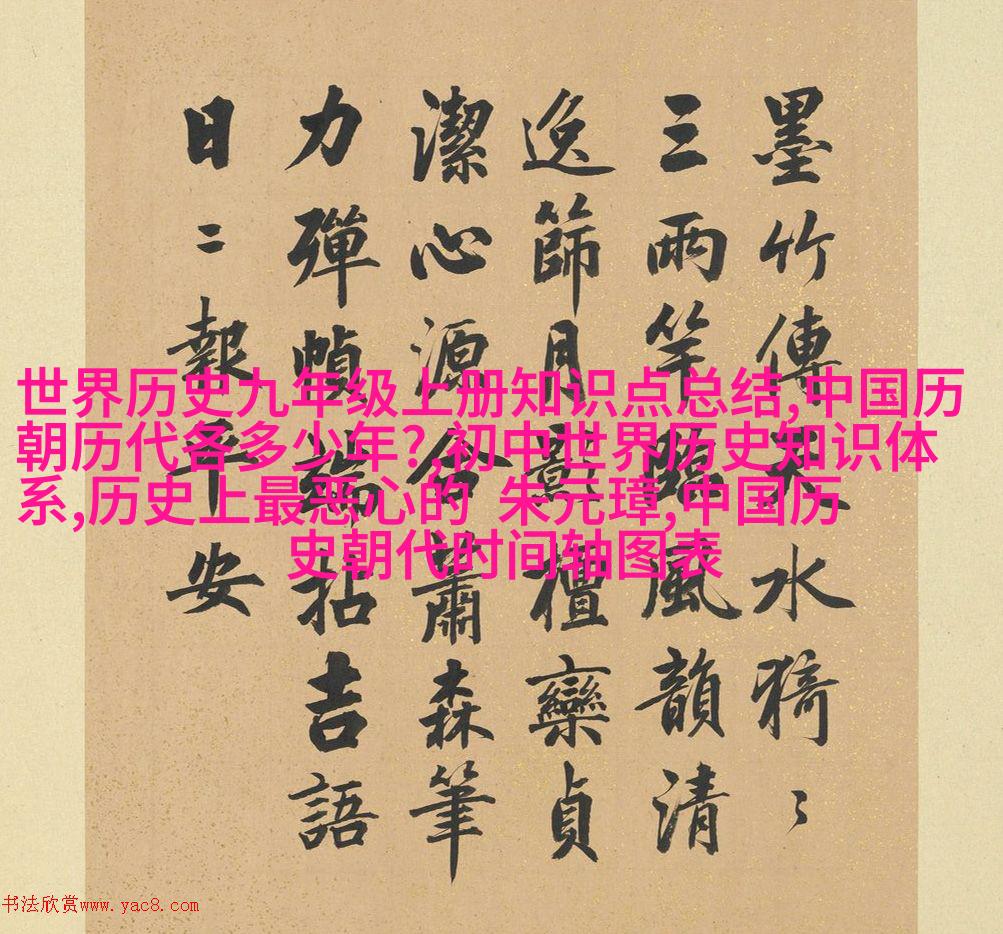 墨竹傳天水猗〻
三兩竿臨風韻清
逸篩月影檀欒貞
潔心源合蕭森筆
力彈幀端拈吉語
日〻報平安
世界历史九年级上册知识点总结,中国历
朝历代各多少年?,初中世界历史知识体
系,历史上最恶心的 朱元璋,中国历
史朝代时间轴图表
书法欣赏www.yac8.com